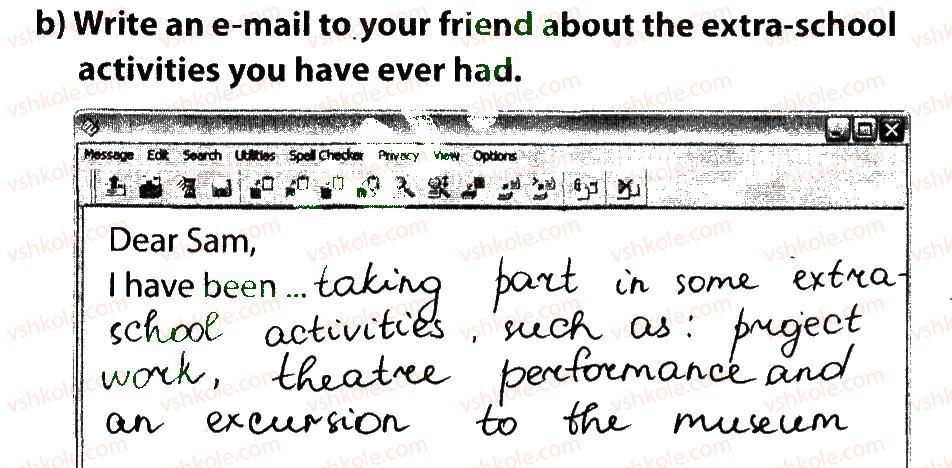 b) Write an e-mail to your friend about the extra-school
activities you have ever had.
Message Edit Search Utilities Spell Checker Privacy View Options
Dear Sam,
I have been ... taking part in some extra-
school activities, such as: project
work, theatre performance and
an excursion to the museum